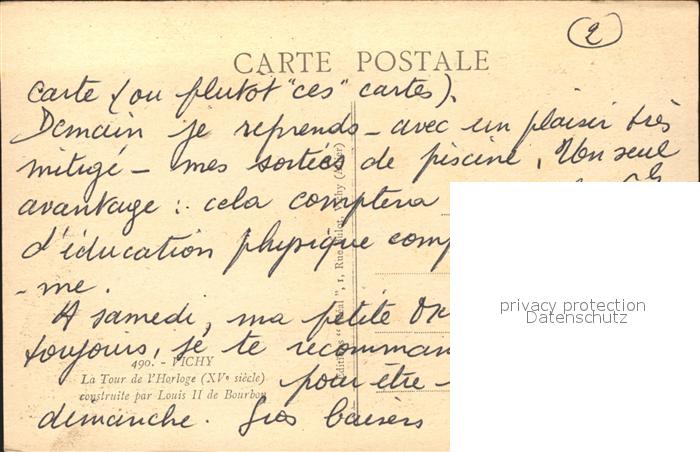 2
CARTE POSTALE
carte (ou plutôt "ces" cartes).
Demain je reprends - avec un plaisir très
mitigé - mes sorties de piscine. Un seul
avantage : cela comptera
d'éducation physique comp
- me.
A samedi, ma petite
toujours, je te recomman
490. - VICHY
La Tour de l'Horloge (XVe siècle)
construite par Louis II de Bourbon
pour être
dimanche. Gros baisers
1, Rue
Vichy
privacy protection
Datenschutz